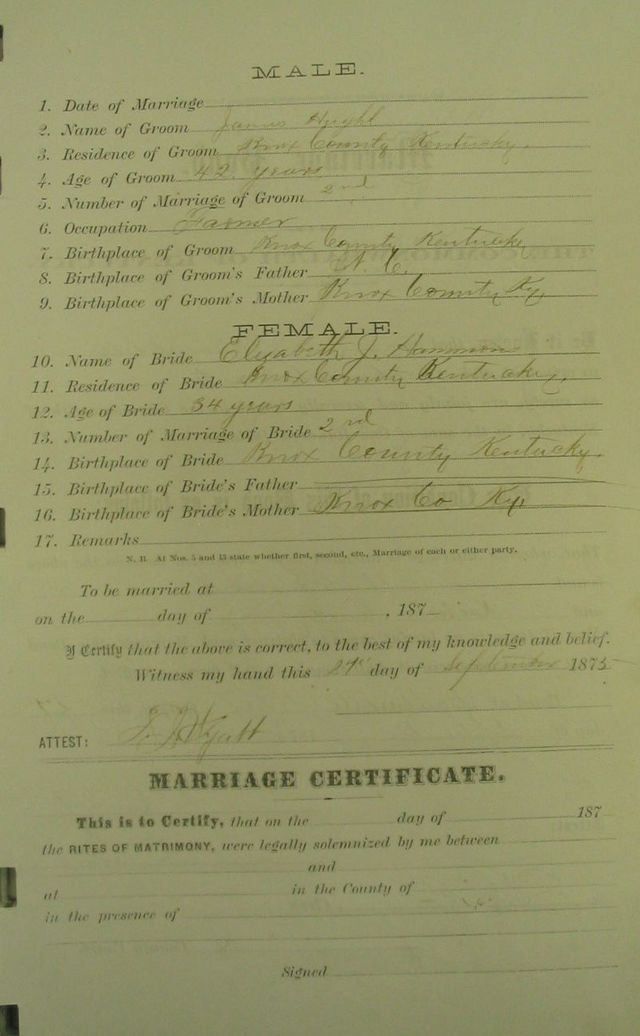 MALE.
1. Date of Marriage
2. Name of Groom James
3. Residence of Groom Knox County Kentucky.
4. Age of Groom 42 years
5. Number of Marriage of Groom 2nd
6. Occupation Farmer
7. Birthplace of Groom Knox County Kentucky
8. Birthplace of Groom's Father N. C.
9. Birthplace of Groom's Mother Knox County Ky
FEMALE.
10. Name of Bride Elizabeth J. Hammon
11. Residence of Bride Knox County Kentucky.
12. Age of Bride 34 years
13. Number of Marriage of Bride 2nd
14. Birthplace of Bride Knox County Kentucky.
15. Birthplace of Bride's Father
16. Birthplace of Bride's Mother Knox Co Ky
17. Remarks
N. B. At Nos. 5 and 13 state whether first, second, etc., Marriage of each or either party.
To be married at
on the day of , 187
I Certify that the above is correct, to the best of my knowledge and belief.
Witness my hand this day of September 1875
ATTEST: Wyatt
MARRIAGE CERTIFICATE.
This is to Certify, that on the day of 187
the RITES OF MATRIMONY, were legally solemnized by me between
and
at in the County of
in the presence of
Signed